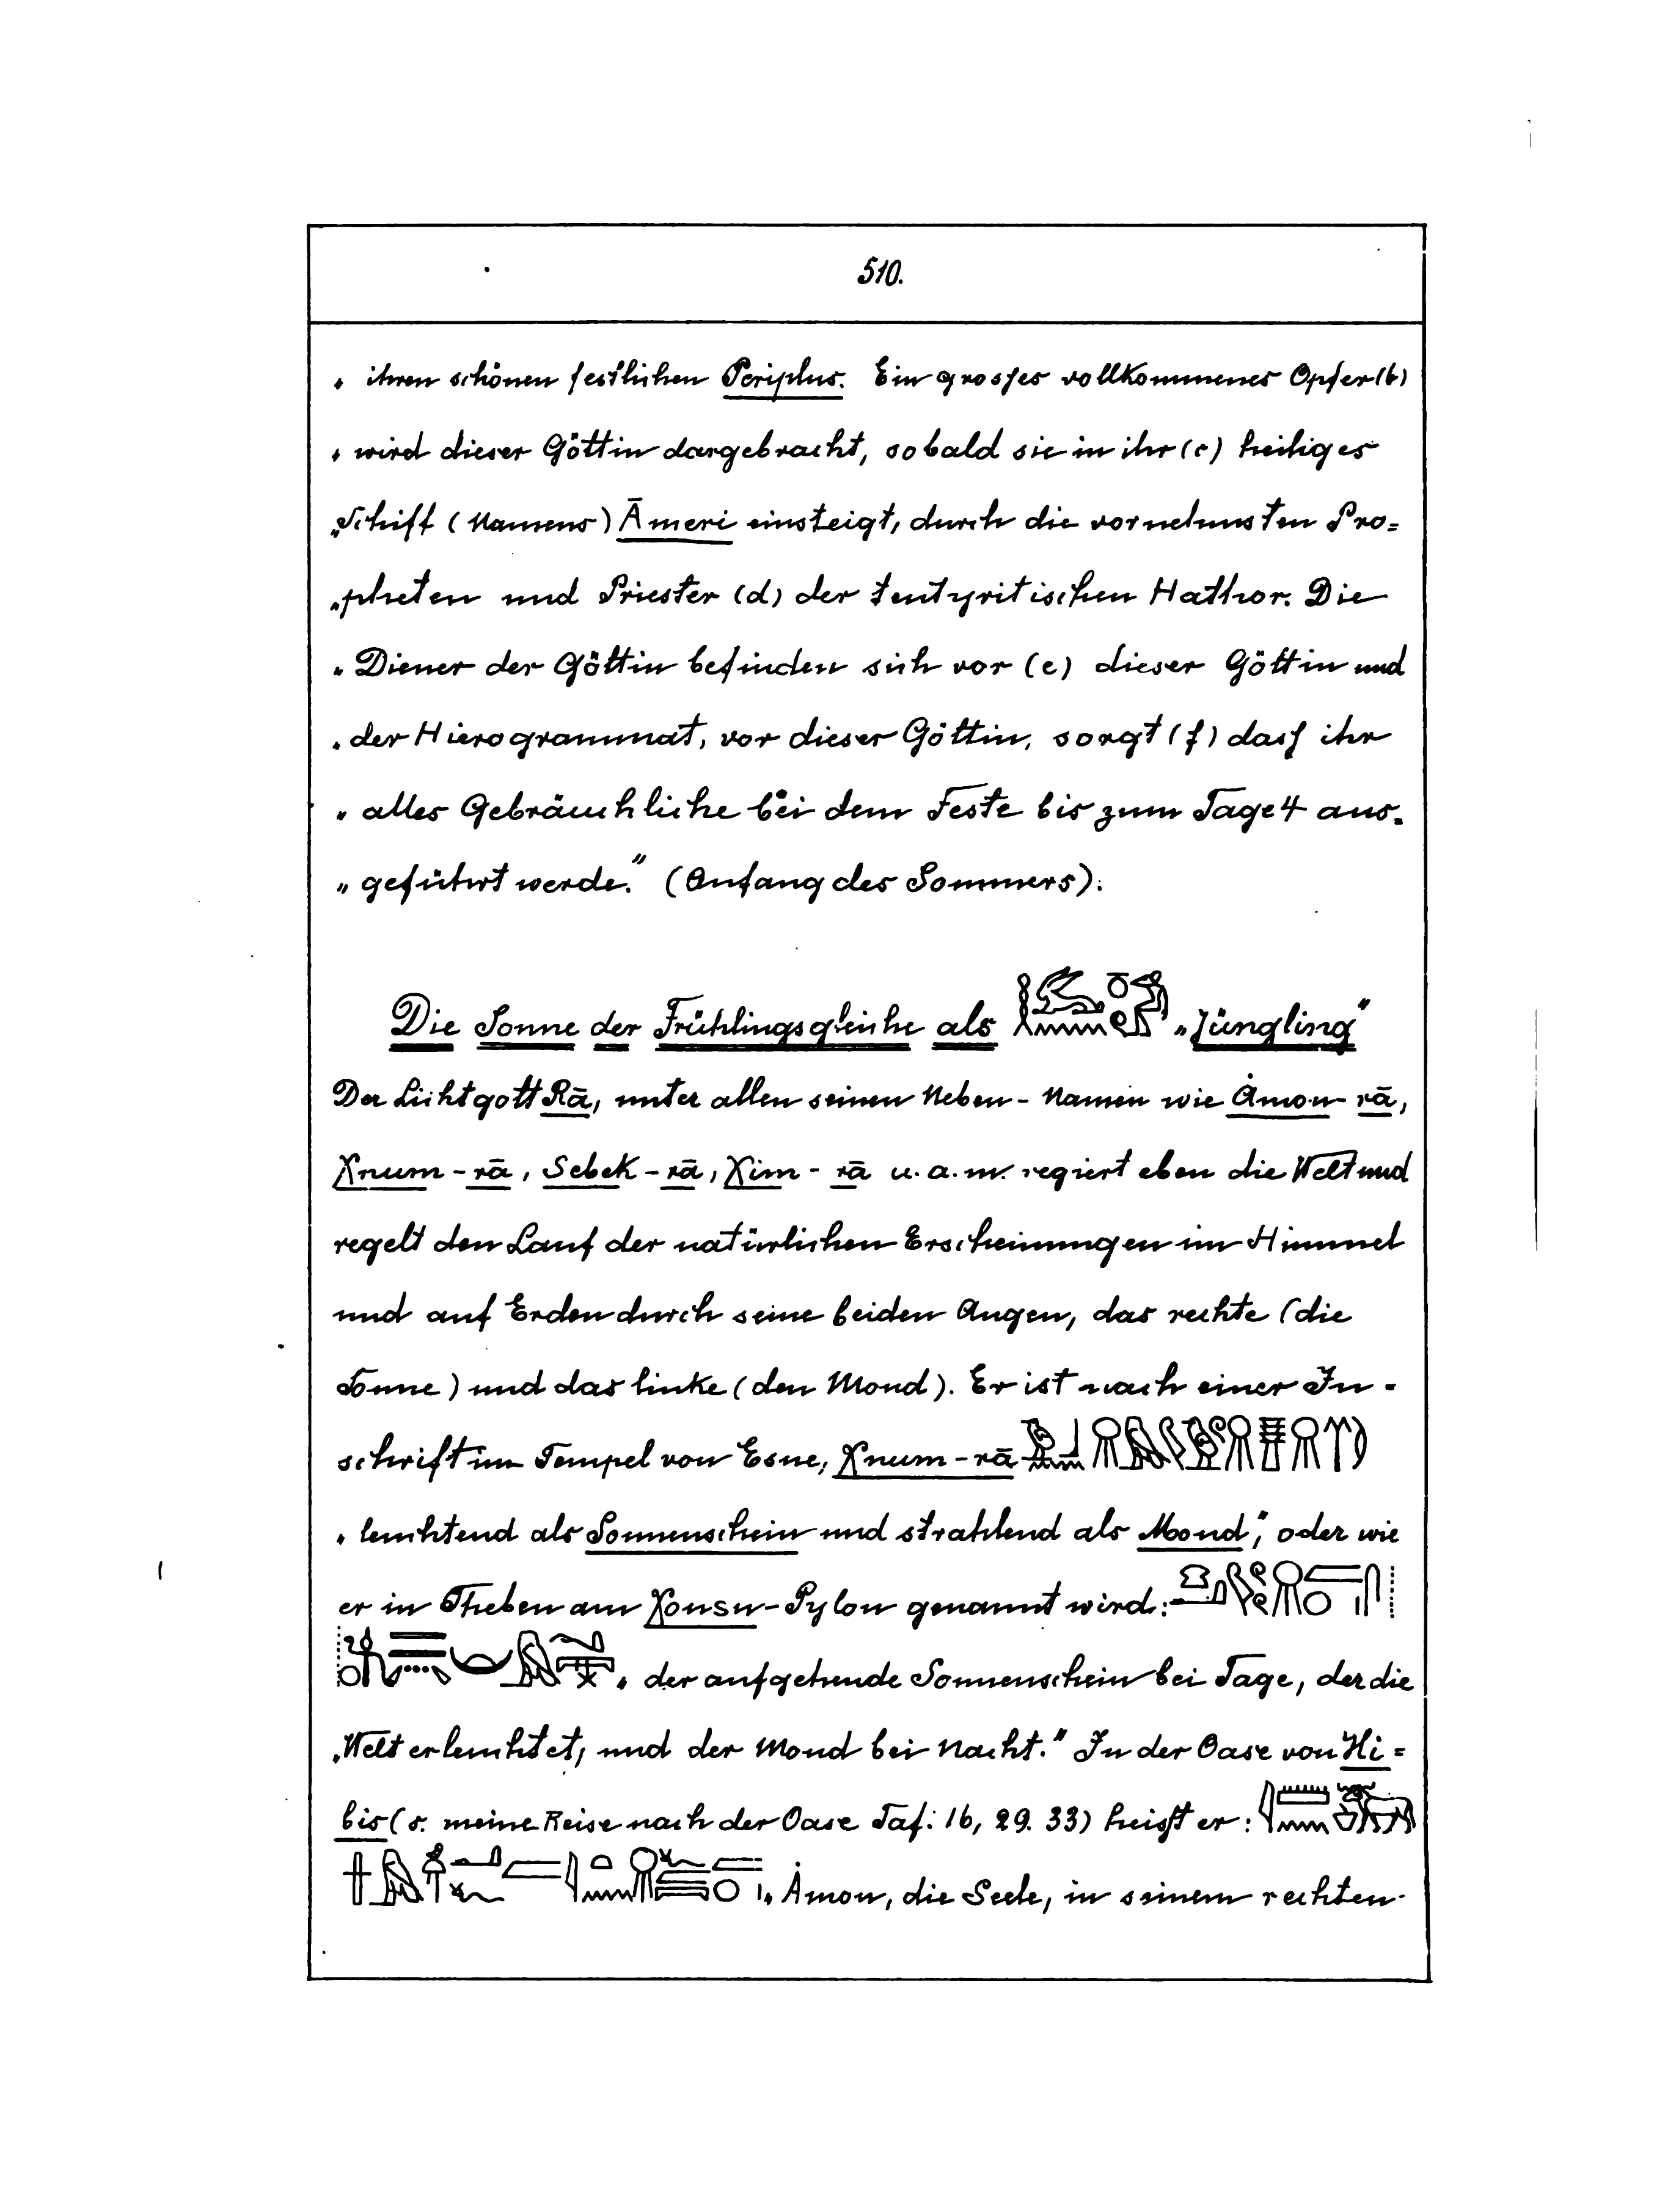 510.
„ ihren schönen festlichen Periplus. Ein grosses vollkommenes Opfer (b)
„ wird dieser Göttin dargebracht, sobald sie in ihr (c) heiliges
„Schiff (Namens) Āmeri einsteigt, durch die vornehmsten Pro=
„pheten und Priester (d) der tentyritischen Hathor. Die
„ Diener der Göttin befinden sich vor (e) dieser Göttin und
„ der Hierogrammat, vor dieser Göttin, sorgt (f) dass ihr
„ alles Gebräuchliche bei dem Feste bis zum Tage 4 aus-
„ geführt werde." (Anfang des Sommers).
Die Sonne der Frühlingsgleiche als „Jüngling"
Der Lichtgott Rā, unter allen seinen Neben-Namen wie Ȧmon-rā,
Xnum-rā, Sebek-rā, Xim-rā u. a. m. regiert eben die Welt und
regelt den Lauf der natürlichen Erscheinungen im Himmel
und auf Erden durch seine beiden Augen, das rechte (die
Sonne) und das linke (den Mond). Er ist nach einer In-
schrift im Tempel von Esne, Xnum-rā
„ leuchtend als Sonnenschein und strahlend als Mond", oder wie
er in Theben am Xonsu-Pylon genannt wird:
„ der aufgehende Sonnenschein bei Tage, der die
„Welt erleuchtet, und der Mond bei Nacht." In der Oase von Hi=
bis (s. meine Reise nach der Oase Taf. 16, 29. 33) heisst er:
„ Ȧmon, die Seele, in seinem rechten